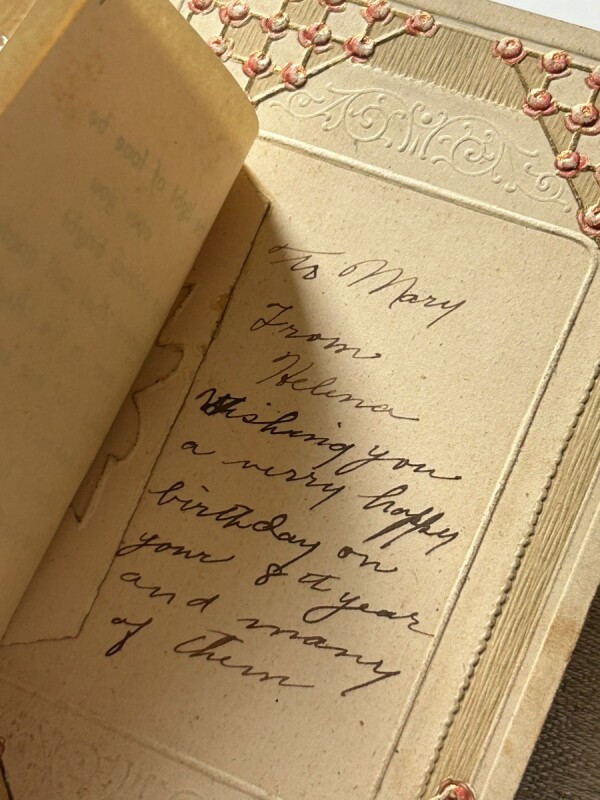 To Mary
From
Helina
Wishing you
a verry happy
birthday on
your 8 th year
and many
of them